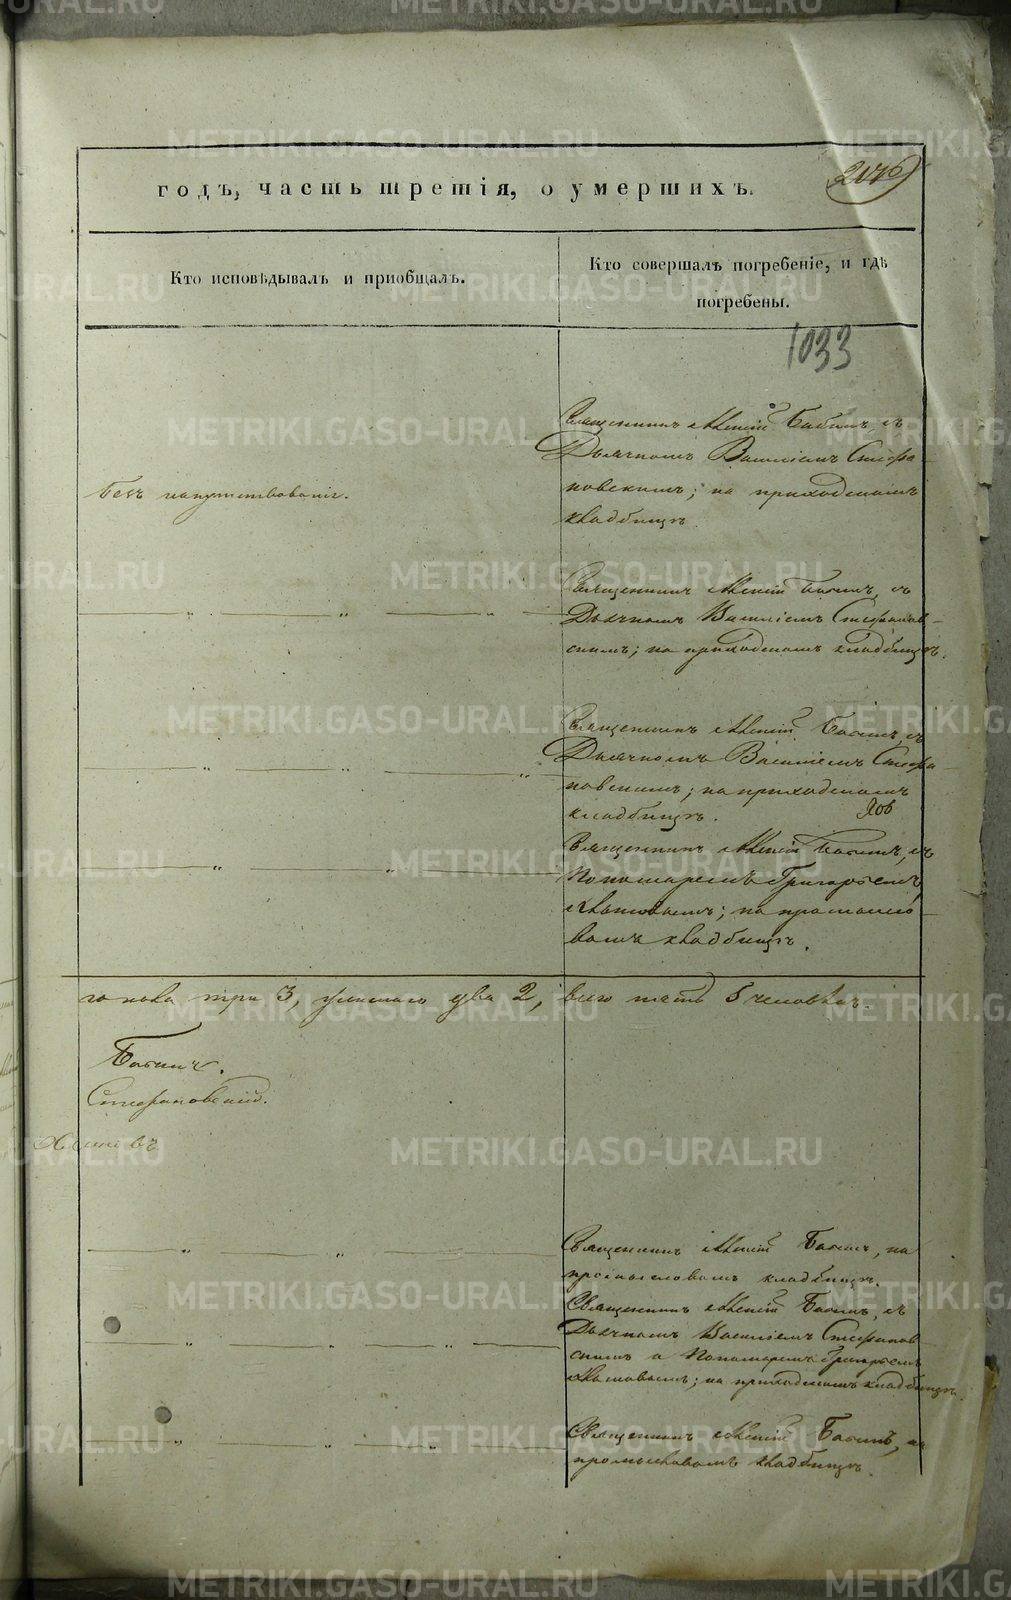 годъ, часть третія, о умершихъ.
Кто исповѣдывалъ и приобщалъ.
Кто совершалъ погребеніе, и гдѣ
погребены.
1033
Священникъ Бабинъ, съ
Дьячкомъ Василіемъ Стефа-
новскимъ; на приходскомъ
кладбищѣ.
безъ напутствованія.
Священникъ Бабинъ, съ
Дьячкомъ Василіемъ Стефанов-
скимъ; на приходскомъ кладбищѣ.
Священникъ Бабинъ, съ
Дьячкомъ Василіемъ Стефа-
новскимъ; на приходскомъ
кладбищѣ.
Священникъ Бабинъ, съ
Пономаремъ Григорьемъ
на промысло-
вомъ кладбищѣ.
го пола три 3, женскаго два 2, всего пять 5 человѣкъ.
Бабинъ.
Стефановскій.
Священникъ Бабинъ, на
промысловомъ кладбищѣ.
Священникъ Бабинъ, съ
Дьячкомъ Василіемъ Стефанов-
скимъ и Пономаремъ Григорьемъ
на приходскомъ кладбищѣ.
Священникъ Бабинъ, на
промысловомъ кладбищѣ.
METRIKI.GASO-URAL.RU